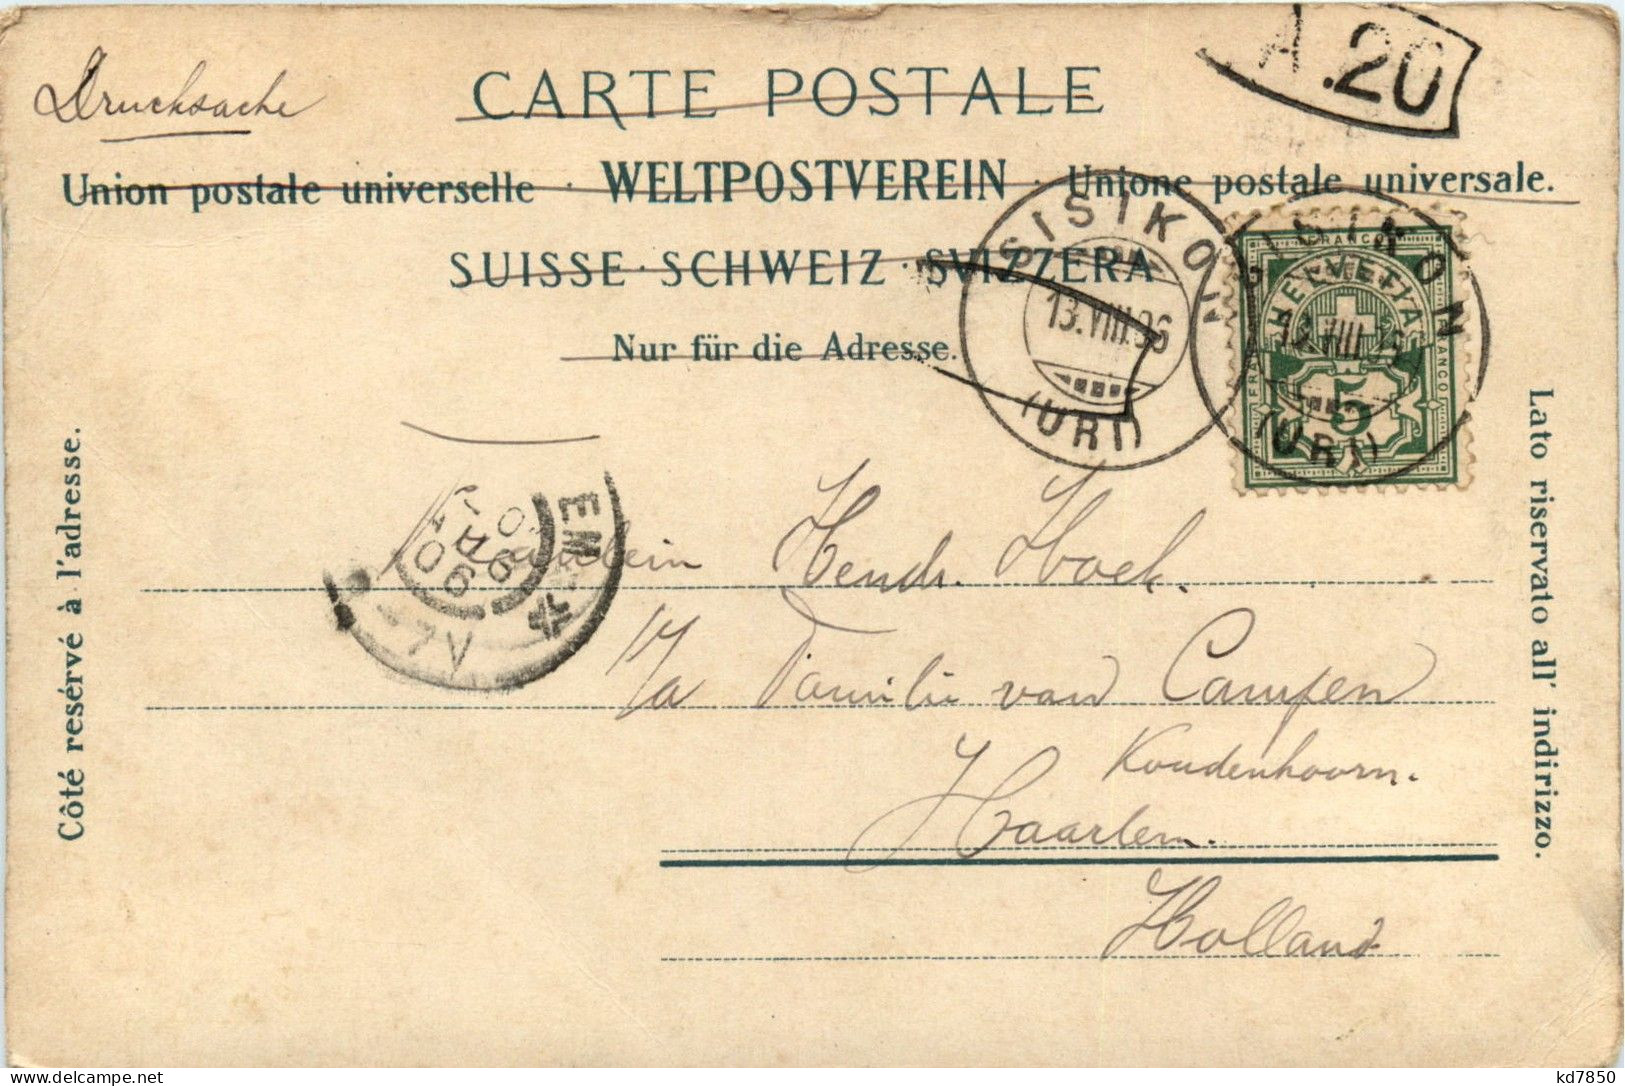 Drucksache
CARTE POSTALE
A.20
Union postale universelle · WELTPOSTVEREIN · Unione postale universale.
SUISSE · SCHWEIZ · SVIZZERA
Nur für die Adresse.
SISIKON
13.VIII.96
(URI)
SISIKON
(URI)
FRANCO
HELVETIA
FRANCO
5
Côté resérvé à l'adresse.
Lato riservato all' indirizzo.
Fräulein Hendr. Hoek.
p/a Familie van Campen
Koudenhoorn.
Haarlem.
Holland
kd7850